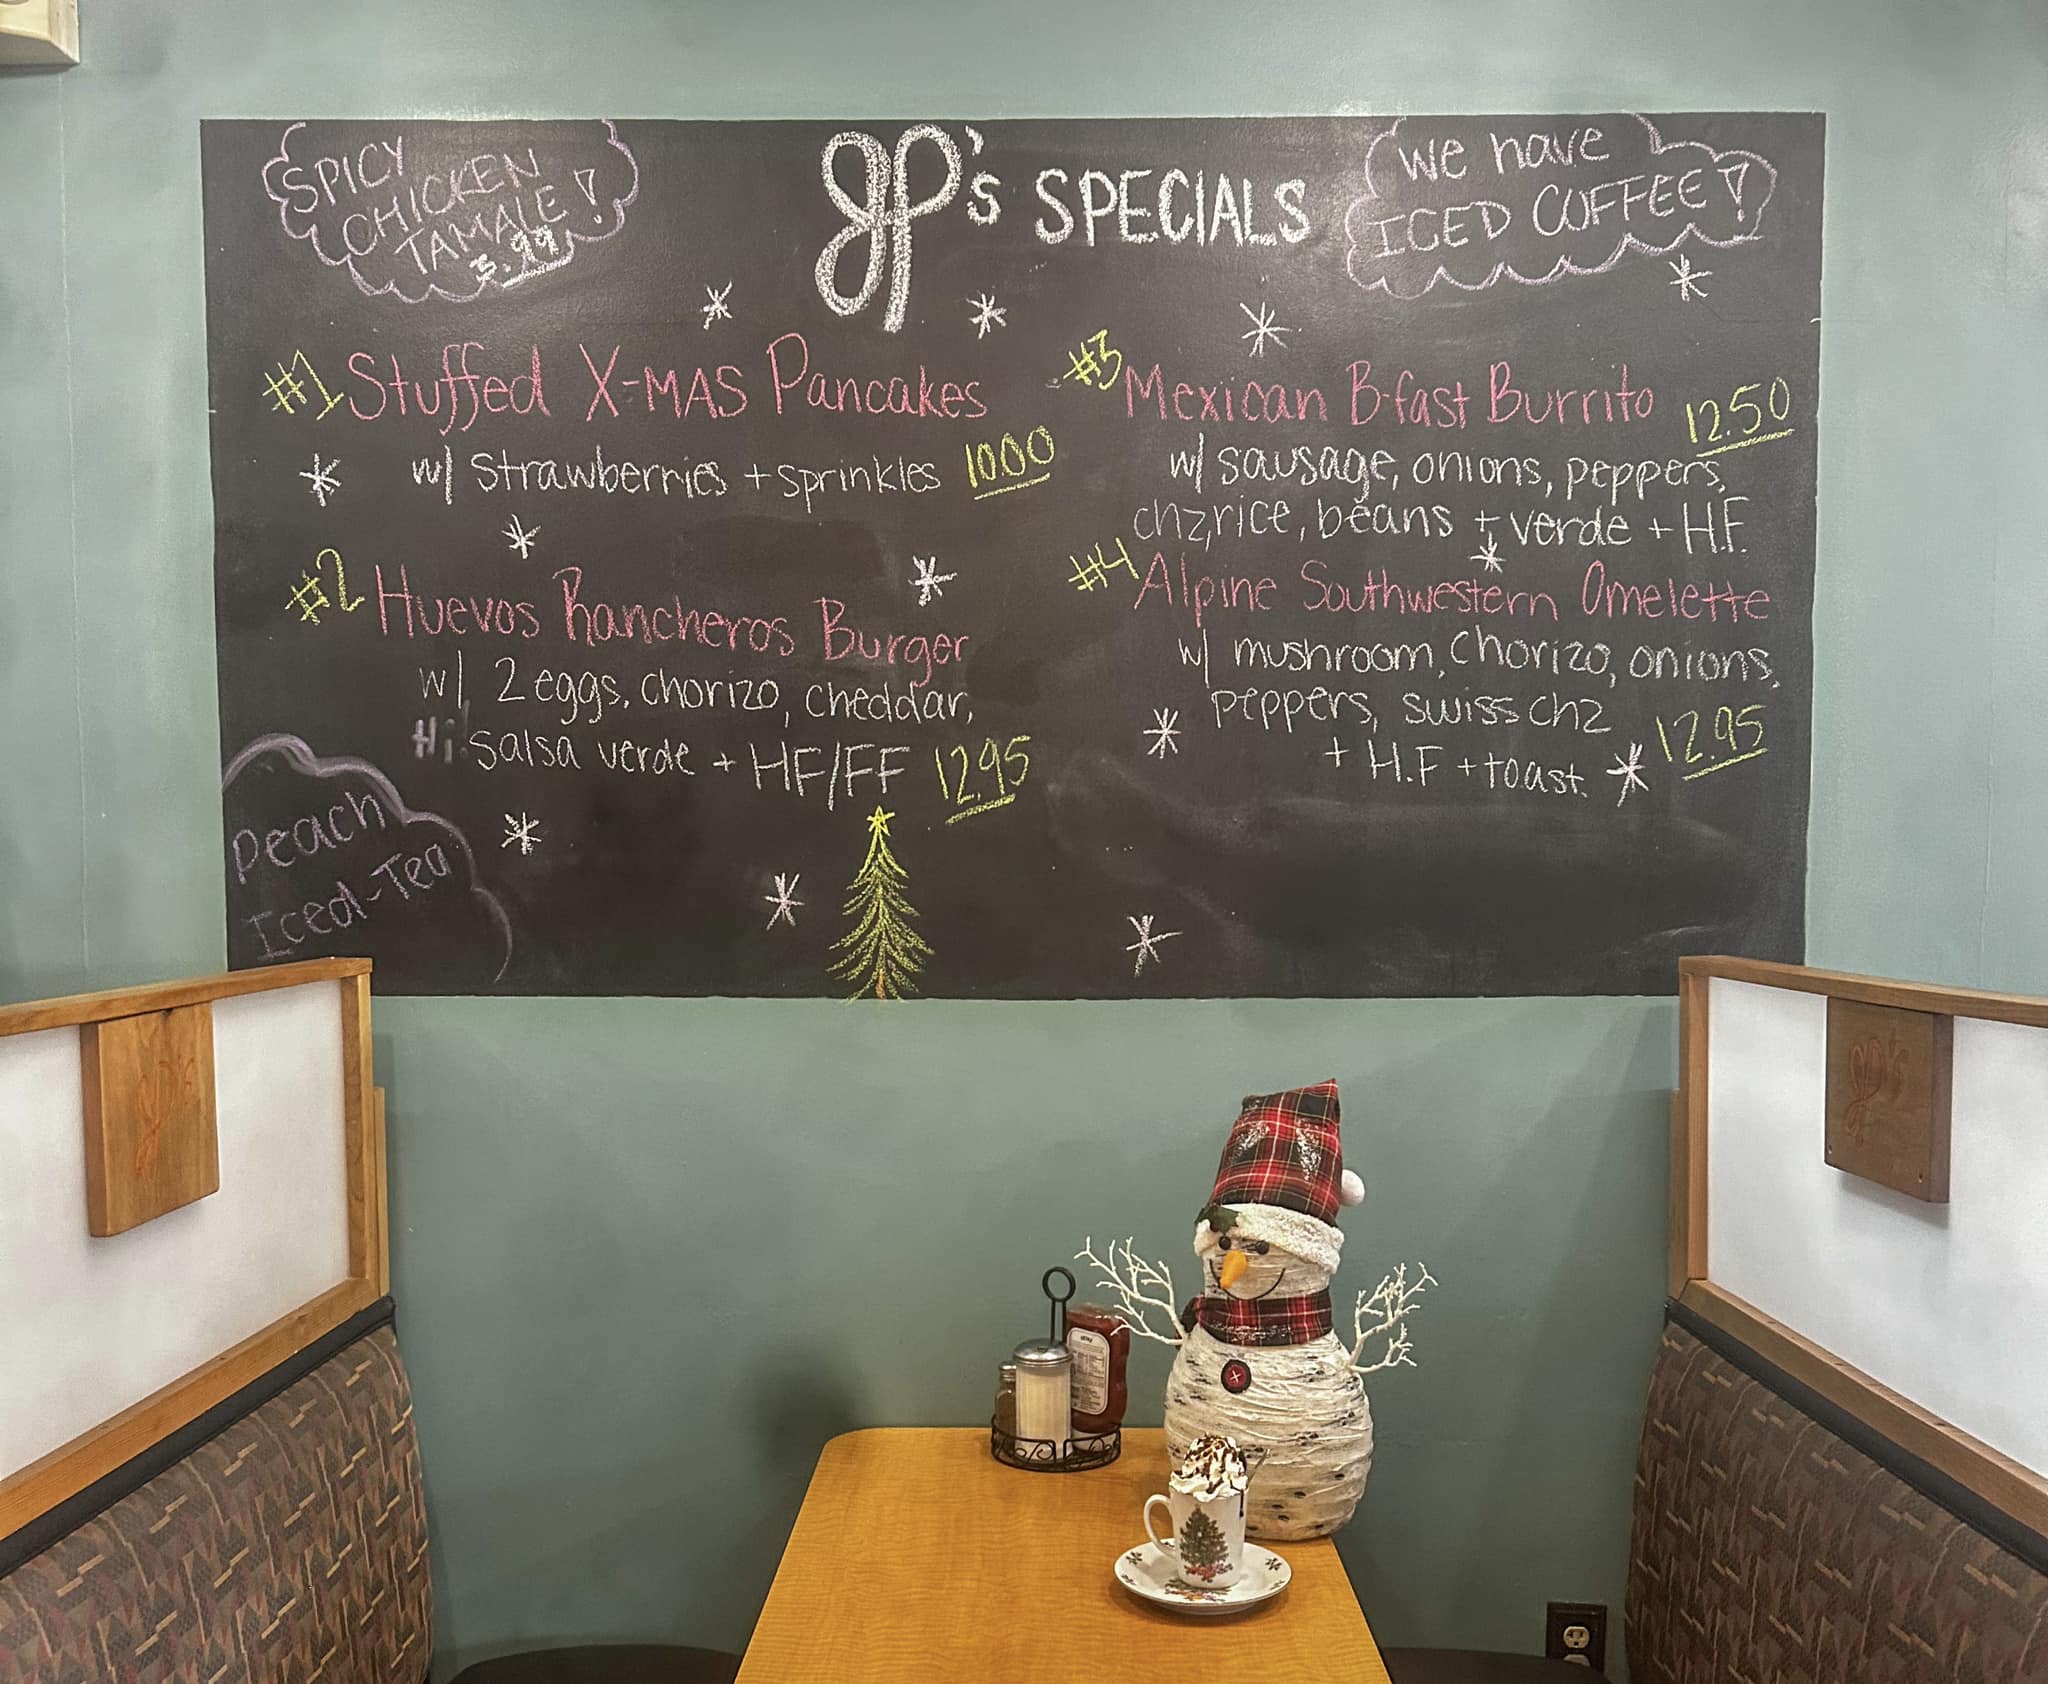 SPICY
CHICKEN
TAMALE!
3.99
JP's SPECIALS
We have
ICED COFFEE!
#1 Stuffed X-MAS Pancakes
w/ strawberries + sprinkles 10.00
#2 Huevos Rancheros Burger
w/ 2 eggs, chorizo, cheddar,
Hi!
salsa verde + HF/FF 12.95
#3 Mexican B-fast Burrito 12.50
w/ sausage, onions, peppers,
chz, rice, beans + verde + H.F.
#4 Alpine Southwestern Omelette
w/ mushroom, chorizo, onions,
peppers, swiss chz
+ H.F + toast. 12.95
Peach
Iced-Tea
JP's
JP's